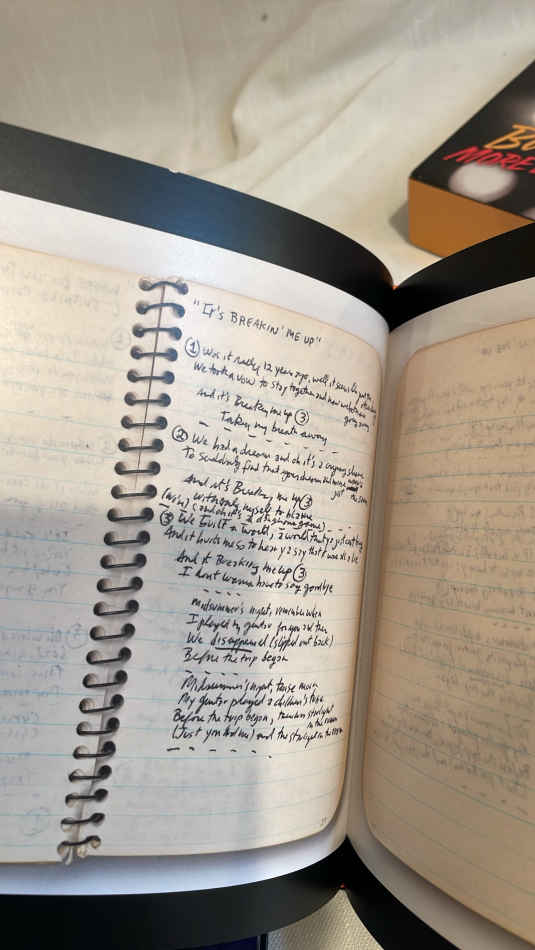 BU
MORE
"IT'S BREAKIN' ME UP"
① Was it really 12 years ago, well, it seems like just the other day
We took a vow to stay together and now we both are going away
And it's Breaking me up ③
Taking my breath away
② We had a dream and oh it's a crying shame
To suddenly find that your dream and mine just the same
And it's Breaking me up ③
(with) with only myself to blame
(and oh it's a game)
③ We built a world, a world that
And it hurts me so to hear you say that it was all a lie
And it Breaking me up ③
I don't wanna have to say goodbye
Midsummer's night, remember when
I played my guitar for you and then
We disappeared (slipped out back)
Before the trip began
Midsummer's night, those
My guitar played a children's tune
Before the trip began, starlight
in the room
(Just you and me) and the starlight in the room